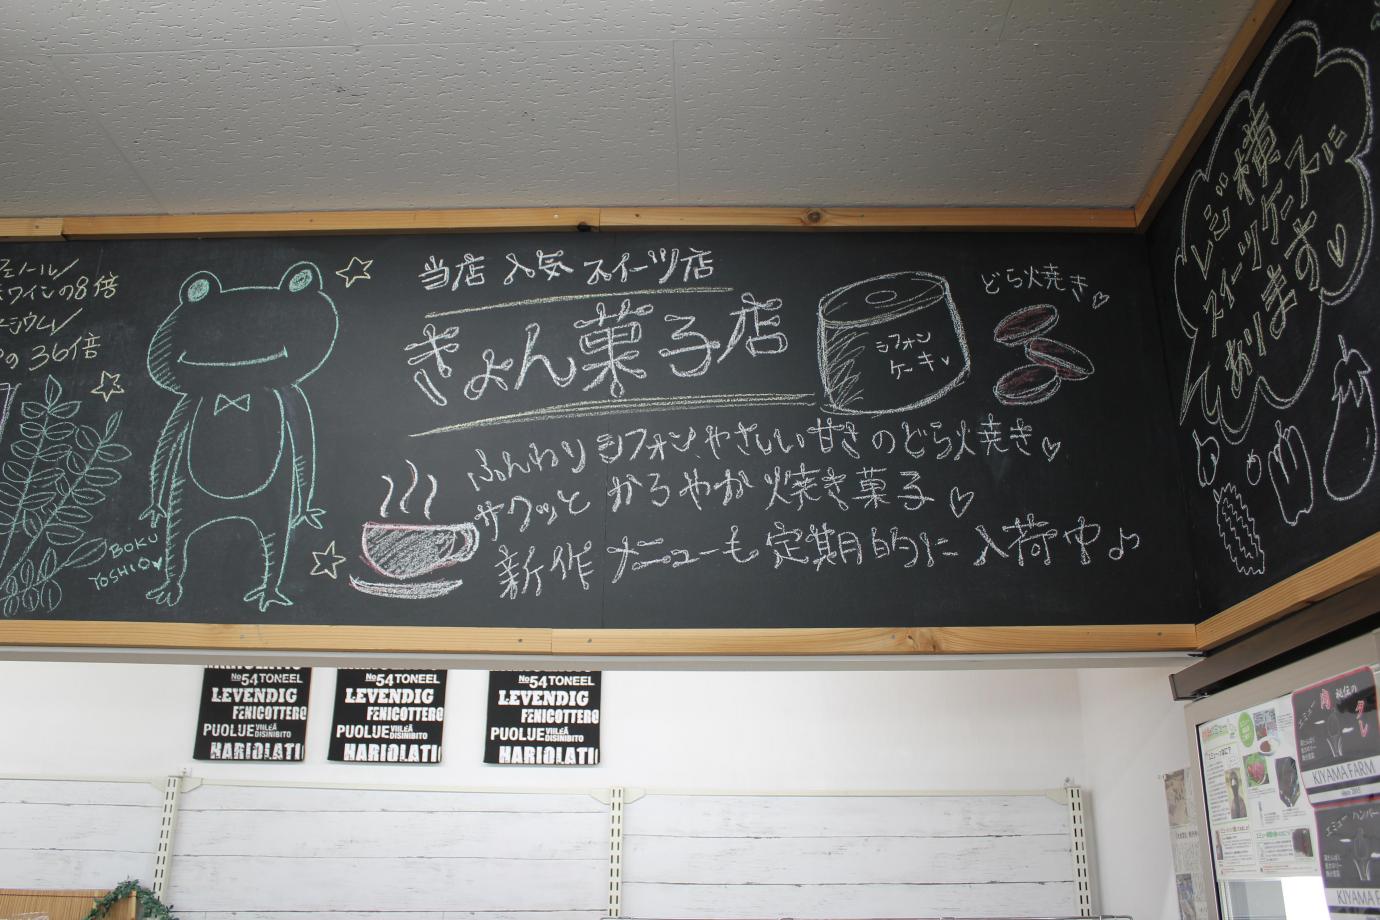 フェノール
ワインの8倍
の36倍
BOKU
YOSHIO
当店 人気 スイーツ店
きょん菓子店
シフォン
ケーキ
どら焼き
ふんわりシフォン、やさしい甘さのどら焼き
サクッと かろやか 焼き菓子
新作 メニューも定期的に 入荷中♪
レジ横
スイーツケースに
てあります
No54TONEEL
LEVENDIG
FENICOTTERO
PUOLUE VIILEÄ DISINIBITO
HARIOLATI
No54TONEEL
LEVENDIG
FENICOTTERO
PUOLUE VIILEÄ DISINIBITO
HARIOLATI
No54TONEEL
LEVENDIG
FENICOTTERO
PUOLUE VIILEÄ DISINIBITO
HARIOLATI
秘伝の
タレ
KIYAMA FARM
エミュー ハンバー
KIYAMA FA